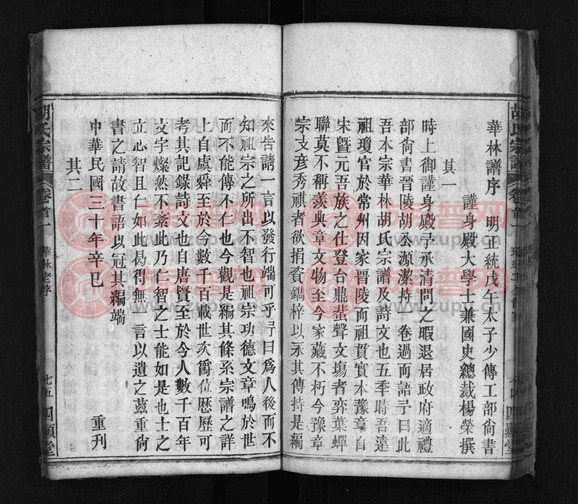 華林譜序
明正統戊午太子少傅工部尚書
謹身殿大學士兼國史總裁楊榮撰
其一
時上御謹身殿予承清問之暇退居政府適禮
部尚書晉陵胡公源潔持一卷過而語予曰此
吾本宗華林胡氏宗譜及詩文也五季時吾遠
祖瓊官於常州因家晉陵而祖貫實本豫章自
宋暨元吾族之仕登台鼎蜚聲文場者奕葉蟬
聯莫不炳炳 典章文物至今家藏不朽今豫章
宗支彥秀祺者欲捐貲鋟梓以永其傳持是編
來告請一言以發行端可乎予曰爲人後而不
知祖宗之所出不智也祖宗功德文章鳴於世
而不能傳不仁也今觀是編其條系宗譜之詳
上自虞舜至於今數千百載世次爵位歷歷可
考其記錄詩文也自唐賢至於今人數千百年
文字燦然不紊此乃仁智之士能如是也士之
立心智且仁如此易得無 言以遺之茲重尚
書之請故書語以冠其編端
中華民國三十年辛巳
重刊
其二
胡氏宗譜
卷首一
華林老序
七五
四顯堂
胡氏宗譜
卷首一
四顯堂